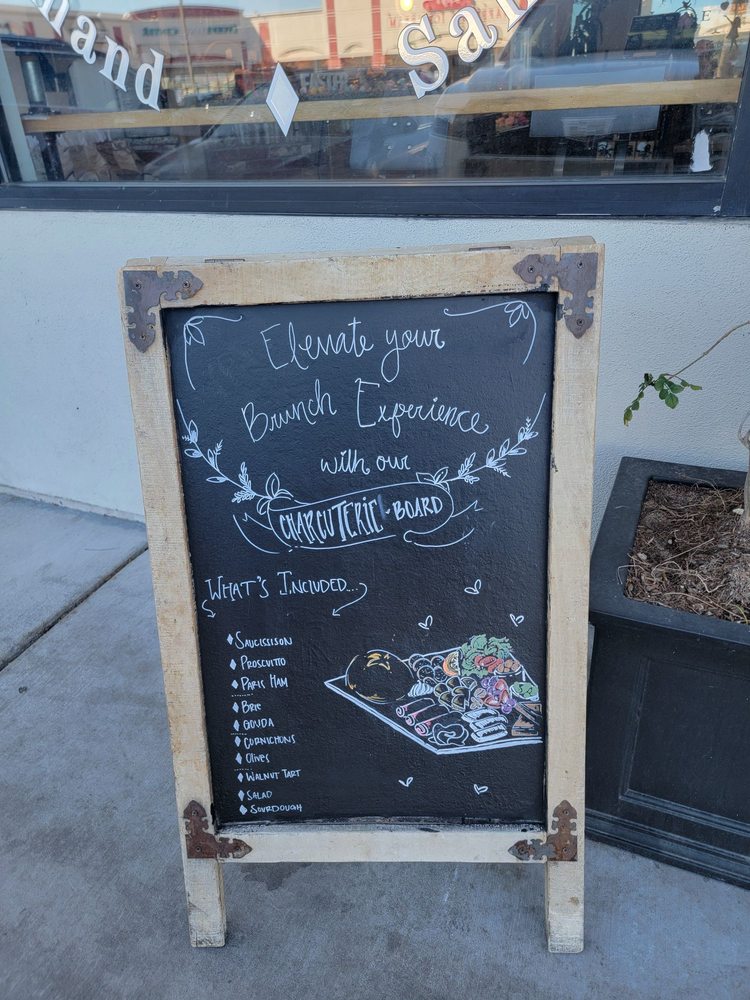 mand
San
Elevate your
Brunch Experience
with our
CHARCUTERIE-BOARD
WHAT'S INCLUDED...
SAUCISSISON
PROSCUITTO
PARIS HAM
BRIE
GOUDA
CORNICHONS
OLIVES
WALNUT TART
SALAD
SOURDOUGH